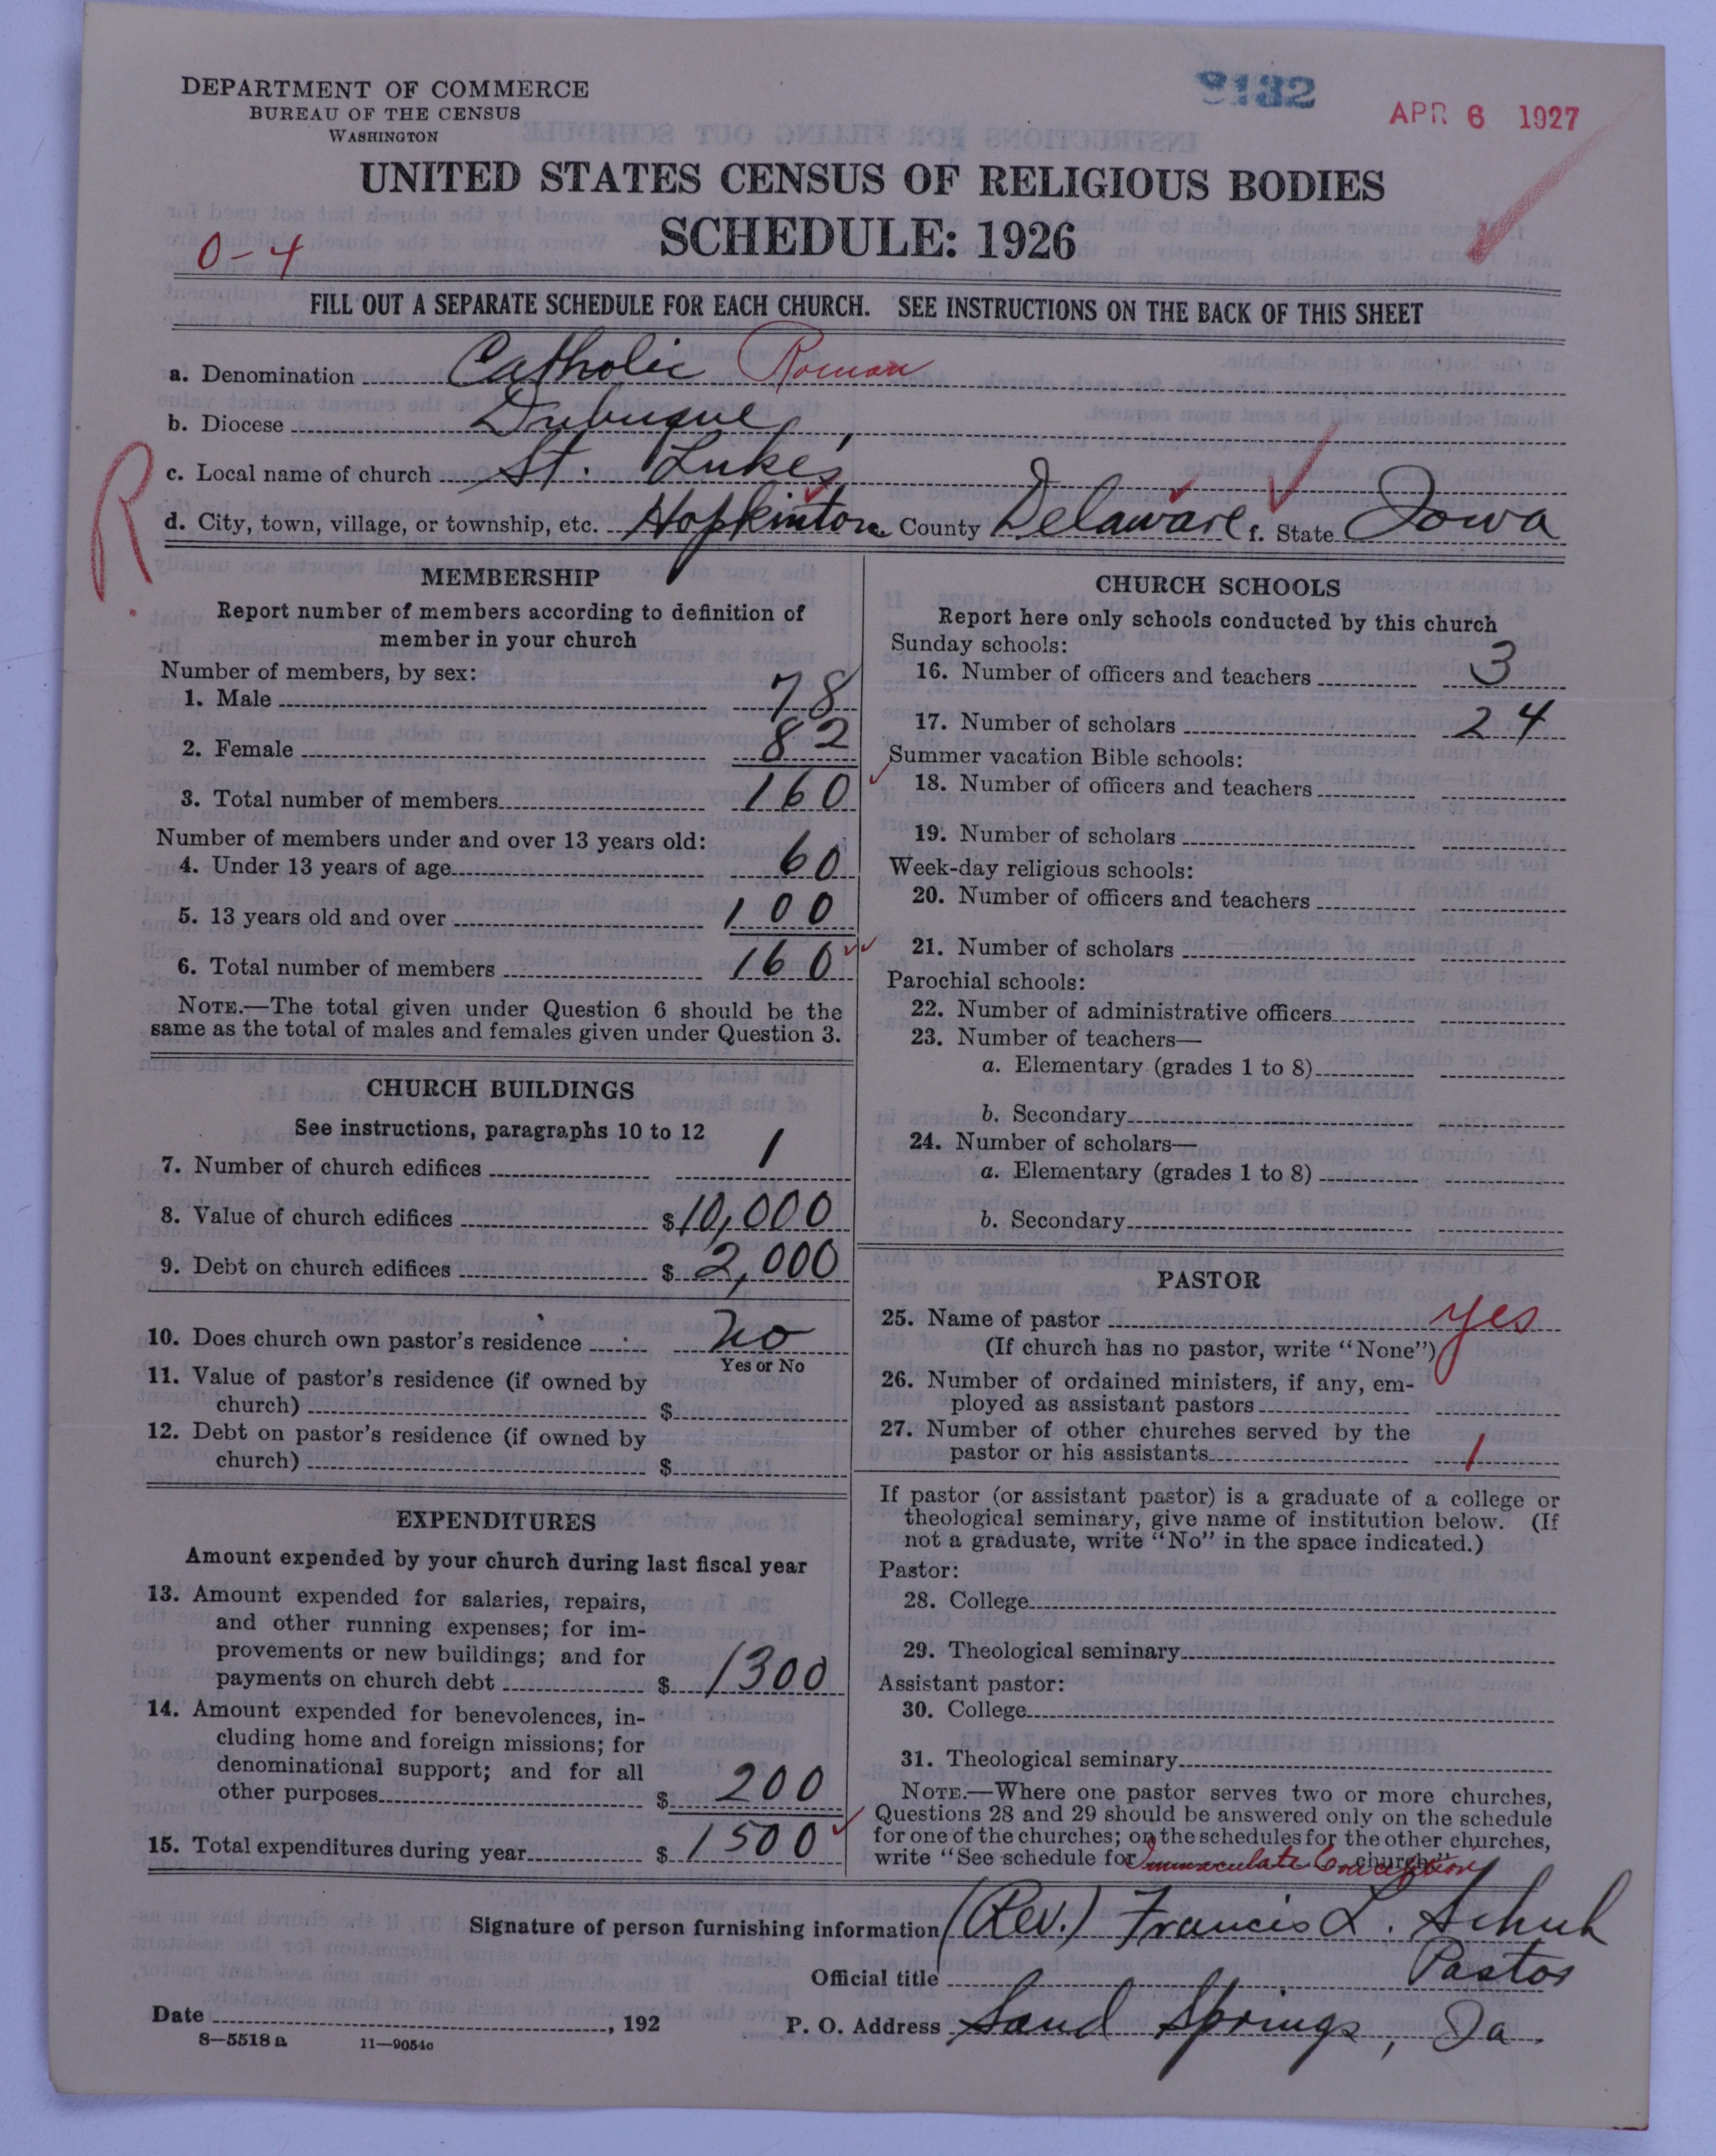 DEPARTMENT OF COMMERCE
BUREAU OF THE CENSUS
WASHINGTON
8132
APR 6 1927
UNITED STATES CENSUS OF RELIGIOUS BODIES
SCHEDULE: 1926
0-4
FILL OUT A SEPARATE SCHEDULE FOR EACH CHURCH. SEE INSTRUCTIONS ON THE BACK OF THIS SHEET
a. Denomination Catholic Roman
b. Diocese Dubuque
c. Local name of church St. Luke's
d. City, town, village, or township, etc. Hopkinton County Delaware f. State Iowa
R.
MEMBERSHIP
Report number of members according to definition of
member in your church
Number of members, by sex:
1. Male 78
2. Female 82
3. Total number of members 160
Number of members under and over 13 years old:
4. Under 13 years of age 60
5. 13 years old and over 100
6. Total number of members 160
NOTE.—The total given under Question 6 should be the
same as the total of males and females given under Question 3.
CHURCH BUILDINGS
See instructions, paragraphs 10 to 12
7. Number of church edifices 1
8. Value of church edifices $10,000
9. Debt on church edifices $ 2,000
10. Does church own pastor's residence no
Yes or No
11. Value of pastor's residence (if owned by
church) $
12. Debt on pastor's residence (if owned by
church) $
EXPENDITURES
Amount expended by your church during last fiscal year
13. Amount expended for salaries, repairs,
and other running expenses; for im-
provements or new buildings; and for
payments on church debt $ 1300
14. Amount expended for benevolences, in-
cluding home and foreign missions; for
denominational support; and for all
other purposes $ 200
15. Total expenditures during year $ 1500
CHURCH SCHOOLS
Report here only schools conducted by this church
Sunday schools:
16. Number of officers and teachers 3
17. Number of scholars 24
Summer vacation Bible schools:
18. Number of officers and teachers
19. Number of scholars
Week-day religious schools:
20. Number of officers and teachers
21. Number of scholars
Parochial schools:
22. Number of administrative officers
23. Number of teachers—
a. Elementary (grades 1 to 8)
b. Secondary
24. Number of scholars—
a. Elementary (grades 1 to 8)
b. Secondary
PASTOR
25. Name of pastor yes
(If church has no pastor, write "None")
26. Number of ordained ministers, if any, em-
ployed as assistant pastors
27. Number of other churches served by the
pastor or his assistants 1
If pastor (or assistant pastor) is a graduate of a college or
theological seminary, give name of institution below. (If
not a graduate, write "No" in the space indicated.)
Pastor:
28. College
29. Theological seminary
Assistant pastor:
30. College
31. Theological seminary
NOTE.—Where one pastor serves two or more churches,
Questions 28 and 29 should be answered only on the schedule
for one of the churches; on the schedules for the other churches,
write "See schedule for Immaculate Conception church."
Signature of person furnishing information (Rev.) Francis L. Schuh
Official title Pastor
Date , 192
P. O. Address Sand Springs, Ia.
8—5518 a 11—9054c